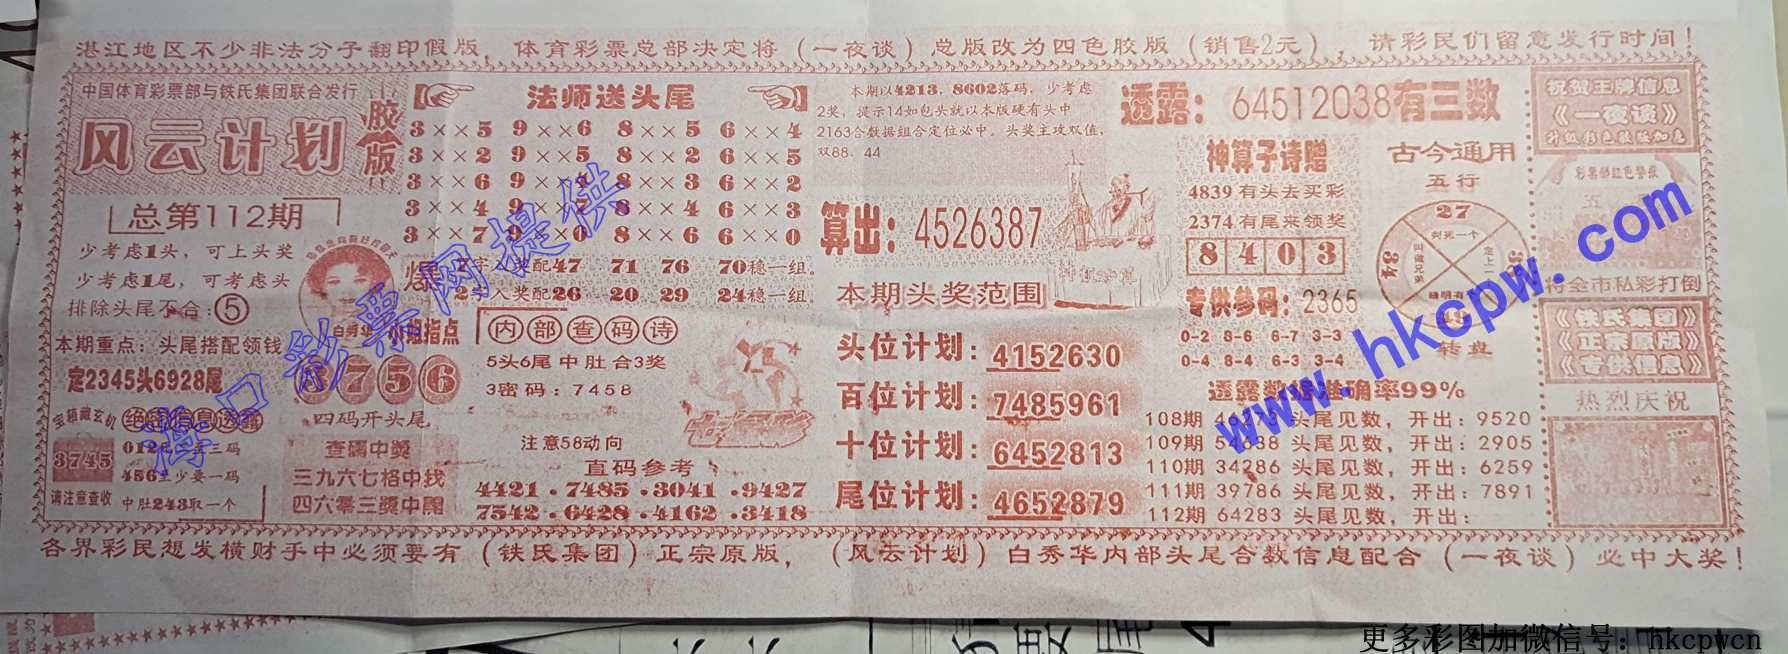 湛江地区不少非法分子翻印假版，体育彩票总部决定将（一夜谈）总版改为四色胶版（销售2元），请彩民们留意发行时间！
中国体育彩票部与铁氏集团联合发行
风云计划
胶版
总第112期
少考虑1头，可上头奖
少考虑1尾，可考虑头
排除头尾不合：⑤
本期重点：头尾搭配领钱
定2345头6928尾
宝箱藏玄机
绝密信息透露
3745
请注意查收
456至少要一码
中肚243取一个
白秀华
小姐指点
8756
四码开头尾
查码中奖
三九六七格中找
四六零三奖中阄
法师送头尾
3××5 9××6 8××5 6××4
3××2 9××5 8××2 6××5
3××6 9××4 8××3 6××2
3××4 9××2 8××4 6××3
3××7 9××0 8××6 6××0
爆
7字入奖配47 71 76 70稳一组。
2字入奖配26 20 29 24稳一组。
内部查码诗
5头6尾中肚合3奖
3密码：7458
注意58动向
直码参考
4421.7485.3041.9427
7542.6428.4162.3418
本期以4213，8602落码，少考虑
2奖，提示14如包头就以本版硬有头中
2163合数据组合定位必中。头奖主攻双值，
双88、44
算出：4526387
本期头奖范围
头位计划：4152630
百位计划：7485961
十位计划：6452813
尾位计划：4652879
透露：64512038有三数
神算子诗赠
4839有头去买彩
2374有尾来领奖
8403
专供参码：2365
0-2 8-6 6-7 3-3
0-4 8-4 6-3 3-4
古今通用
五行
27
判死一个
34
叫做兄弟
49
转盘
透露数据准确率99%
头尾见数，开出：9520
109期 54638 头尾见数，开出：2905
110期 34286 头尾见数，开出：6259
111期 39786 头尾见数，开出：7891
112期 64283 头尾见数，开出：
祝贺王牌信息
《一夜谈》
升级彩色胶版加急
彩票部红色警报
将全市私彩打倒
《铁氏集团》
《正宗原版》
《专供信息》
热烈庆祝
各界彩民想发横财手中必须要有（铁氏集团）正宗原版，（风云计划）白秀华内部头尾合数信息配合（一夜谈）必中大奖！
海口彩票网提供
www.hkcpw.com
更多彩图加微信号：hkcpwcn